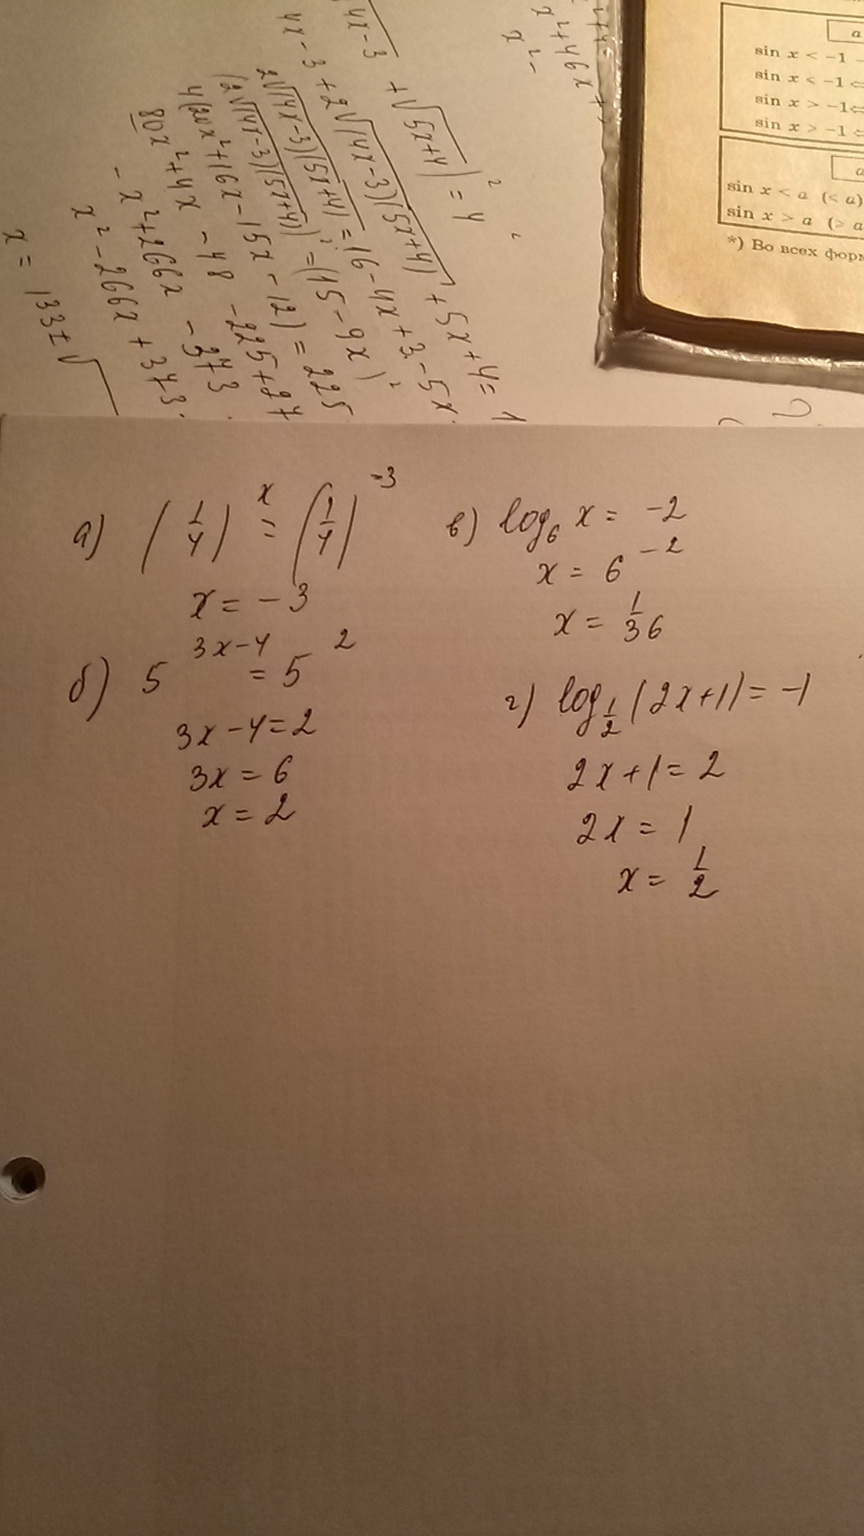 4x-3 + √(5x+4) ) = 4²
4x - 3 + 2√((4x-3)(5x+4)) + 5x + 4 = 1
2√((4x-3)(5x+4)) = 16 - 4x + 3 - 5x
(2√((4x-3)(5x+4)))² = (15 - 9x)²
4(20x² + 16x - 15x - 12) = 225
80x² + 4x - 48 - 225 + 27
- x² + 266x - 273
x² - 266x + 373
x = 133 ± √
x² + 46x
x² -
a
sin x < -1
sin x < -1
sin x > -1
sin x > -1
a
sin x < a (< a)
sin x > a (> a
*) Во всех форм
а) (1/4)^x = (1/4)^-3
x = -3
б) 5^(3x-4) = 5^2
3x - 4 = 2
3x = 6
x = 2
в) log₆ x = -2
x = 6^-2
x = 1/36
г) log_1/2 (2x+1) = -1
2x + 1 = 2
2x = 1
x = 1/2